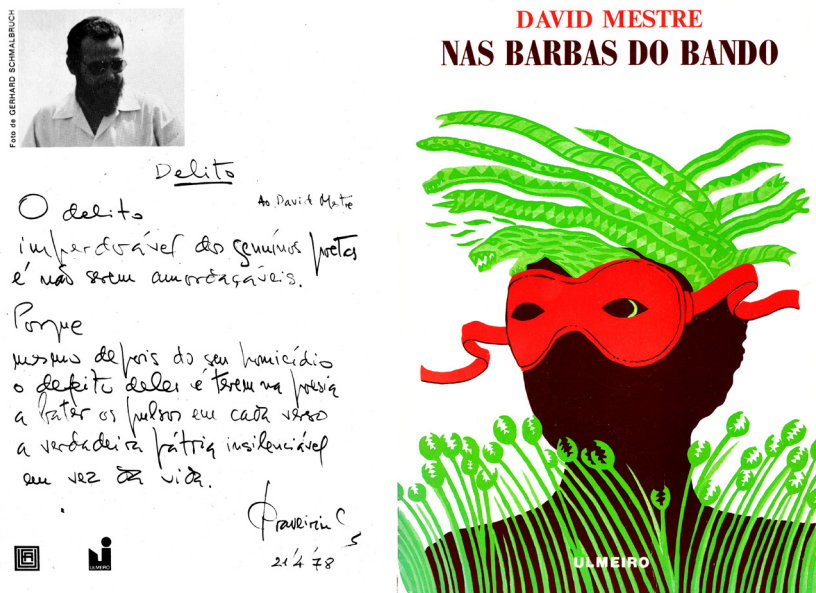 Foto de GERHARD SCHMALBRUCH
Delito
Ao David Mestre
O delito
imperdoável dos genuínos poetas
é não serem amordaçáveis.
Porque
mesmo depois do seu homicídio
o defeito deles é terem na poesia
a bater os pulsos em cada verso
a verdadeira pátria insilenciável
em vez da vida.
21´4´78
ULMEIRO
DAVID MESTRE
NAS BARBAS DO BANDO
ULMEIRO